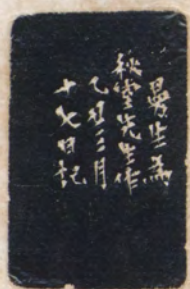 曼生為
秘堂先生作
乙丑三月
十七日記